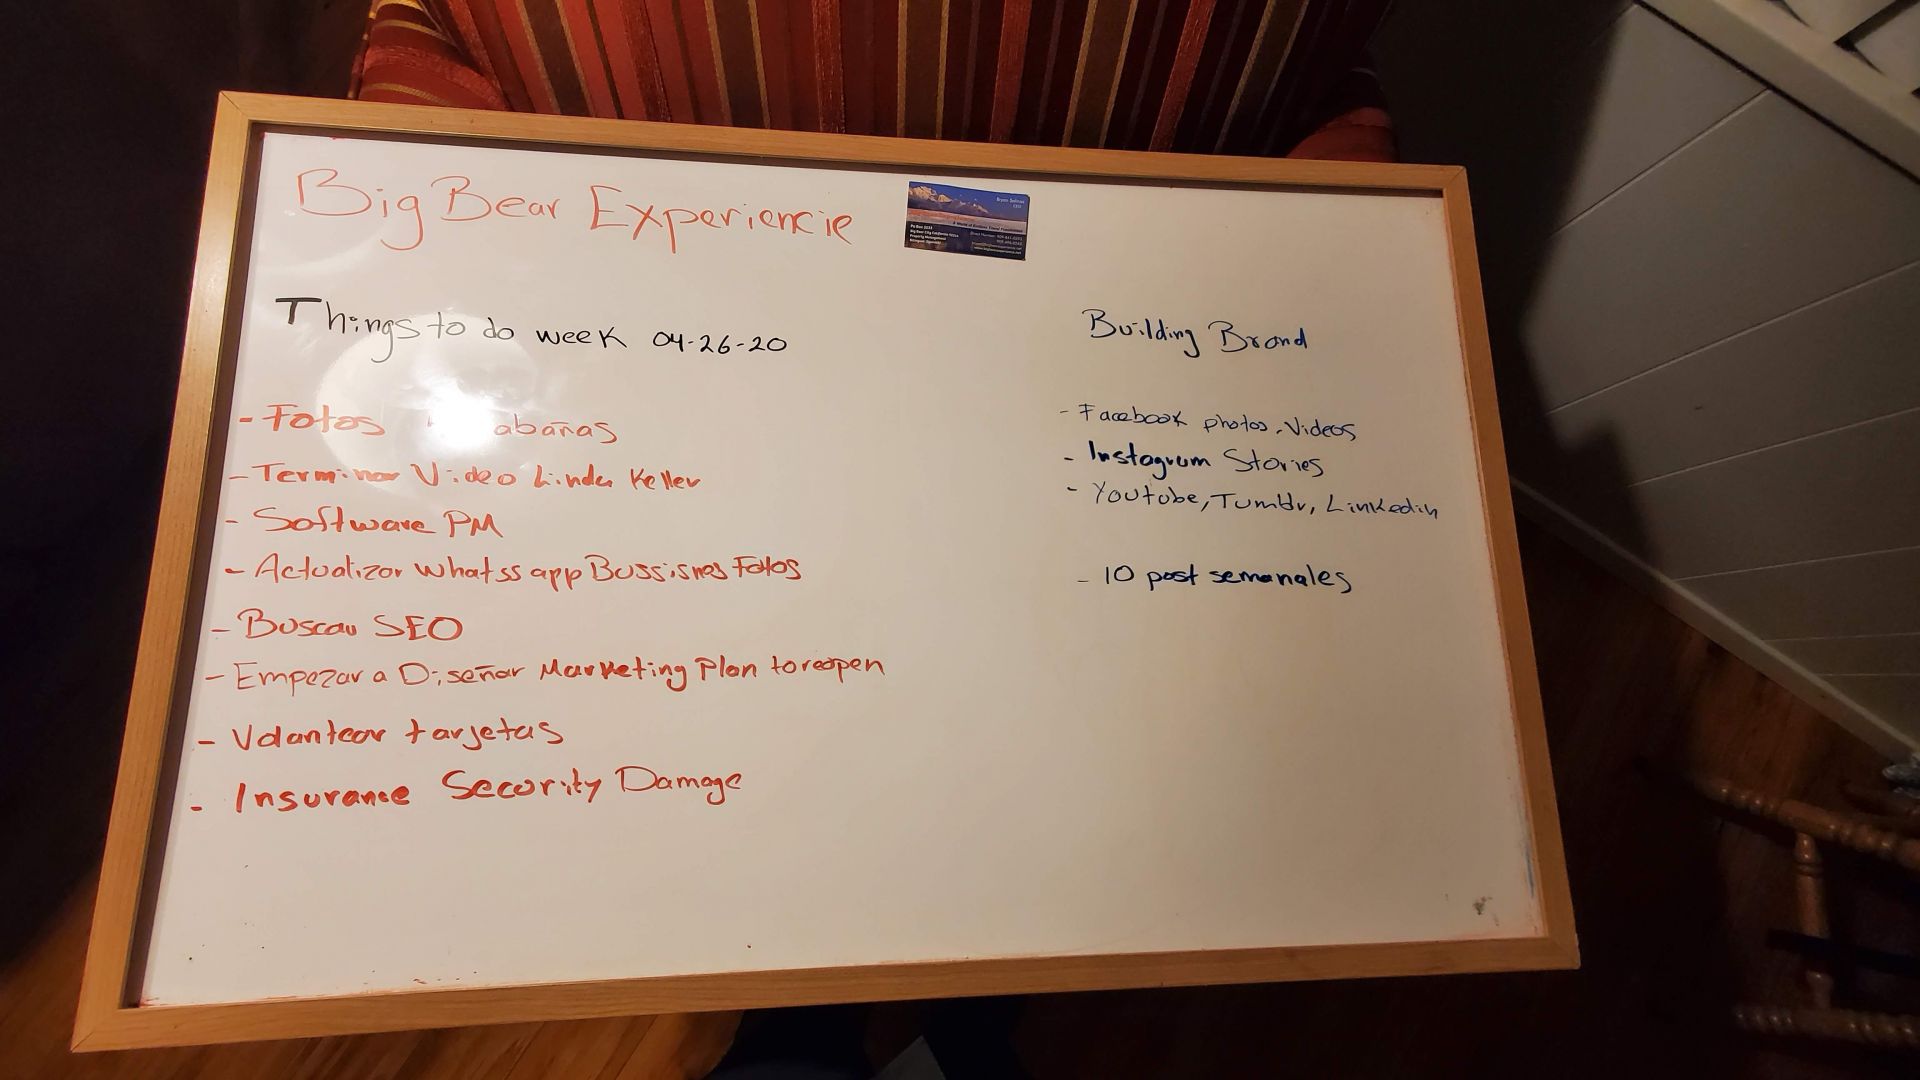 Big Bear Experiencie
Things to do week 04-26-20
- Fotos abañas
- Terminar Video Linda Keller
- Software PM
- Actualizar Whatss app Bussisnes Fotos
- Buscar SEO
- Empezar a Diseñar Marketing Plan to reopen
- Volantear tarjetas
- Insurance Security Damage
Building Brand
- Facebook photos, Videos
- Instagram Stories
- Youtube, Tumblr, Linkedin
- 10 post semanales